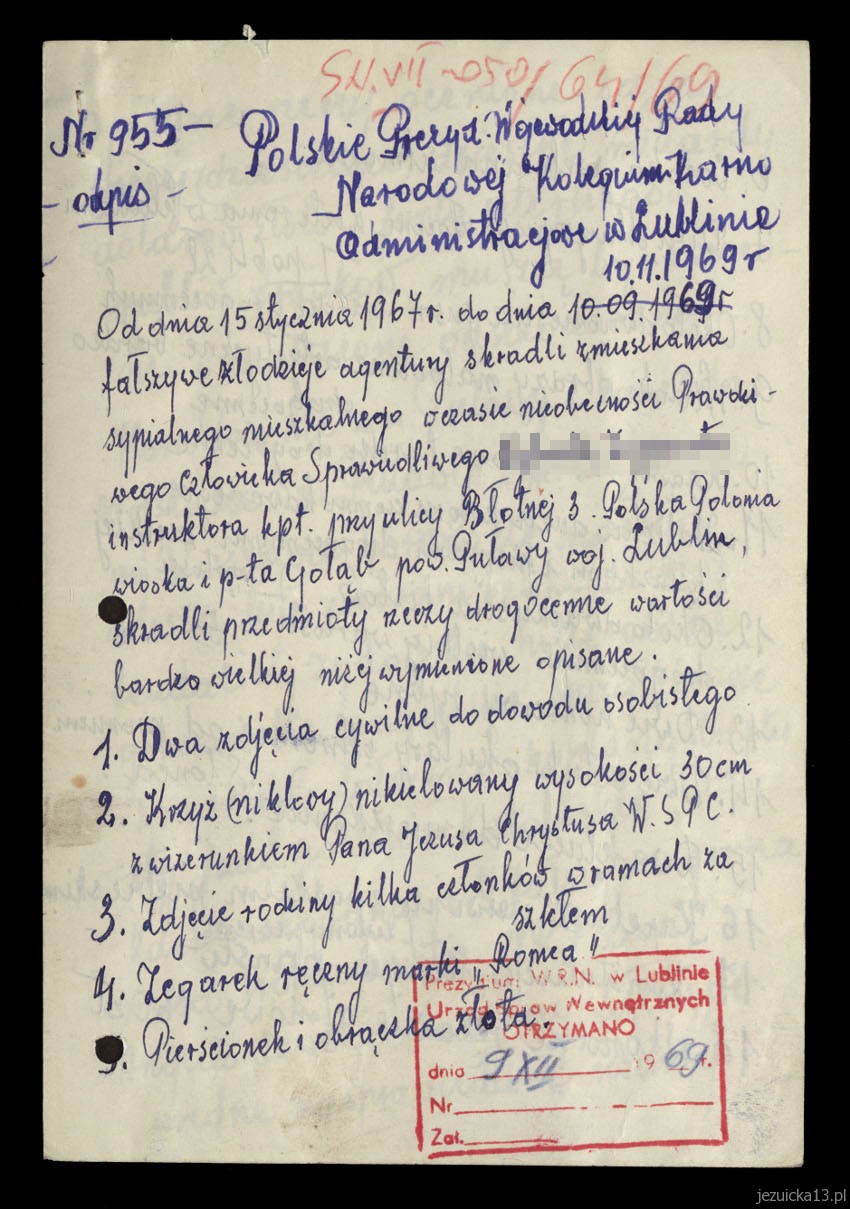 SN.VII-050/64/69
Nr 955-
- odpis -
Polskie Prezyd. Wojewódzkiej Rady
Narodowej Kolegium Karno
Administracyjne w Lublinie
10.11.1969 r
Od dnia 15 stycznia 1967 r. do dnia 10.09.1969 r
fałszywe złodzieje agentury skradli z mieszkania
sypialnego mieszkalnego w czasie nieobecności Prawdzi-
wego Człowieka Sprawiedliwego
instruktora kpt. przy ulicy Błotnej 3. Polska Polonia
wioska i p-ta Gołąb pow. Puławy woj. Lublin,
skradli przedmioty rzeczy drogocenne wartości
bardzo wielkiej niżej wymienione opisane.
1. Dwa zdjęcia cywilne do dowodu osobistego
2. Krzyż (niklowy) nikielowany wysokości 30 cm
z wizerunkiem Pana Jezusa Chrystusa W.S P C.
3. Zdjęcie rodziny kilka członków w ramach za
szkłem
4. Zegarek ręczny marki „Romea"
5. Pierścionek i obrączka złota.
Prezydium W.R.N. w Lublinie
Urząd Spraw Wewnętrznych
OTRZYMANO
dnia 9 XII 1969 r.
Nr
Zał.
jezuicka13.pl